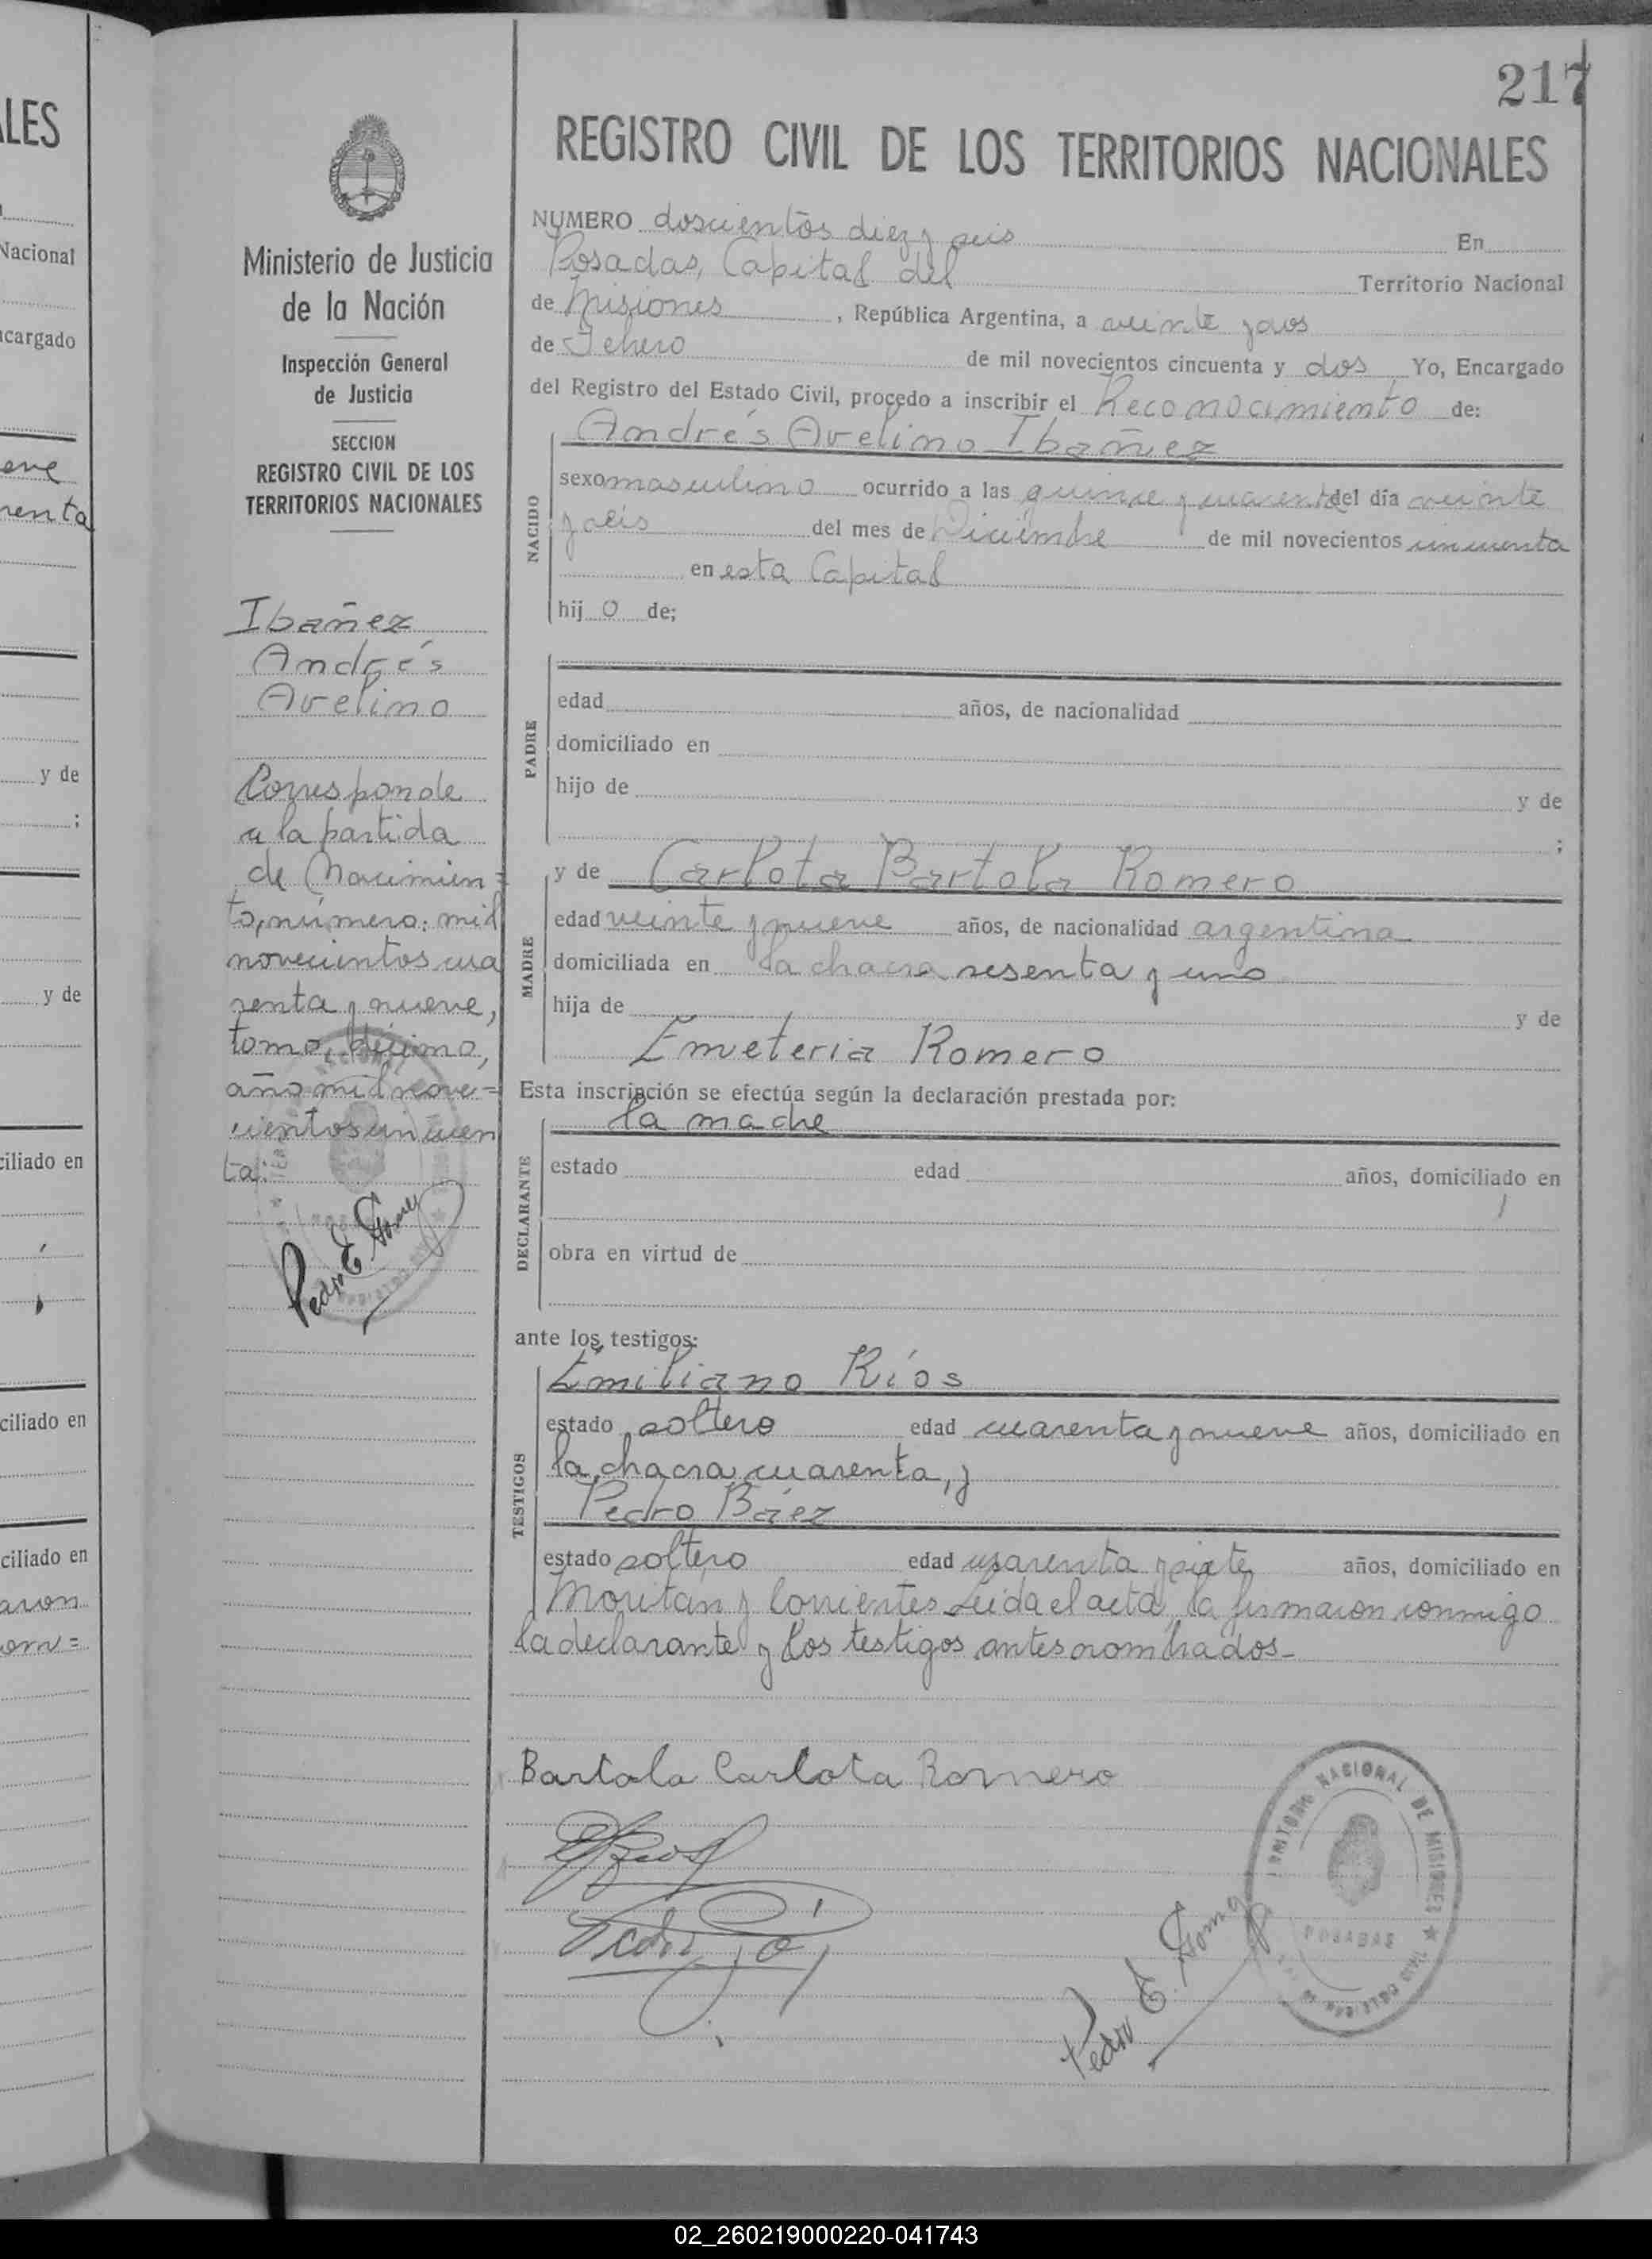 LES
Nacional
cargado
eve
renta
y de
;
y de
ciliado en
ciliado en
ciliado en
aron
om=
217
Ministerio de Justicia
de la Nación
Inspección General
de Justicia
SECCION
REGISTRO CIVIL DE LOS
TERRITORIOS NACIONALES
Ibañez
Andrés
Avelino
Corresponde
a la partida
de Nacimien
to, número: mil
novecientos cua
renta y nueve,
tomo, décimo,
año mil nove=
cientos cincuen
ta.
Pedro E. Gomez
REGISTRO CIVIL DE LOS TERRITORIOS NACIONALES
NUMERO doscientos diez y seis En
Posadas, Capital del Territorio Nacional
de Misiones, República Argentina, a veinte y dos
de Febrero de mil novecientos cincuenta y dos Yo, Encargado
del Registro del Estado Civil, procedo a inscribir el Reconocimiento de:
Andrés Avelino Ibañez
NACIDO
sexo masculino ocurrido a las quince y cuarenta del día veinte
y seis del mes de Diciembre de mil novecientos cincuenta
en esta Capital
hijo de;
PADRE
edad años, de nacionalidad
domiciliado en
hijo de y de
;
y de Carlota Bartola Romero
MADRE
edad veinte y nueve años, de nacionalidad argentina
domiciliada en la chacra sesenta y uno
hija de y de
Emeteria Romero
Esta inscripción se efectúa según la declaración prestada por:
la madre
DECLARANTE
estado edad años, domiciliado en
obra en virtud de
ante los testigos:
Emiliano Ríos
TESTIGOS
estado soltero edad cuarenta y nueve años, domiciliado en
la chacra cuarenta, y
Pedro Báez
estado soltero edad cuarenta y siete años, domiciliado en
Moritán y Corrientes Leida el acta, la firmaron conmigo
la declarante y los testigos antes nombrados.-
Bartola Carlota Romero
Pedro E. Gomez
TERRITORIO NACIONAL DE MISIONES
POSADAS
02_260219000220-041743